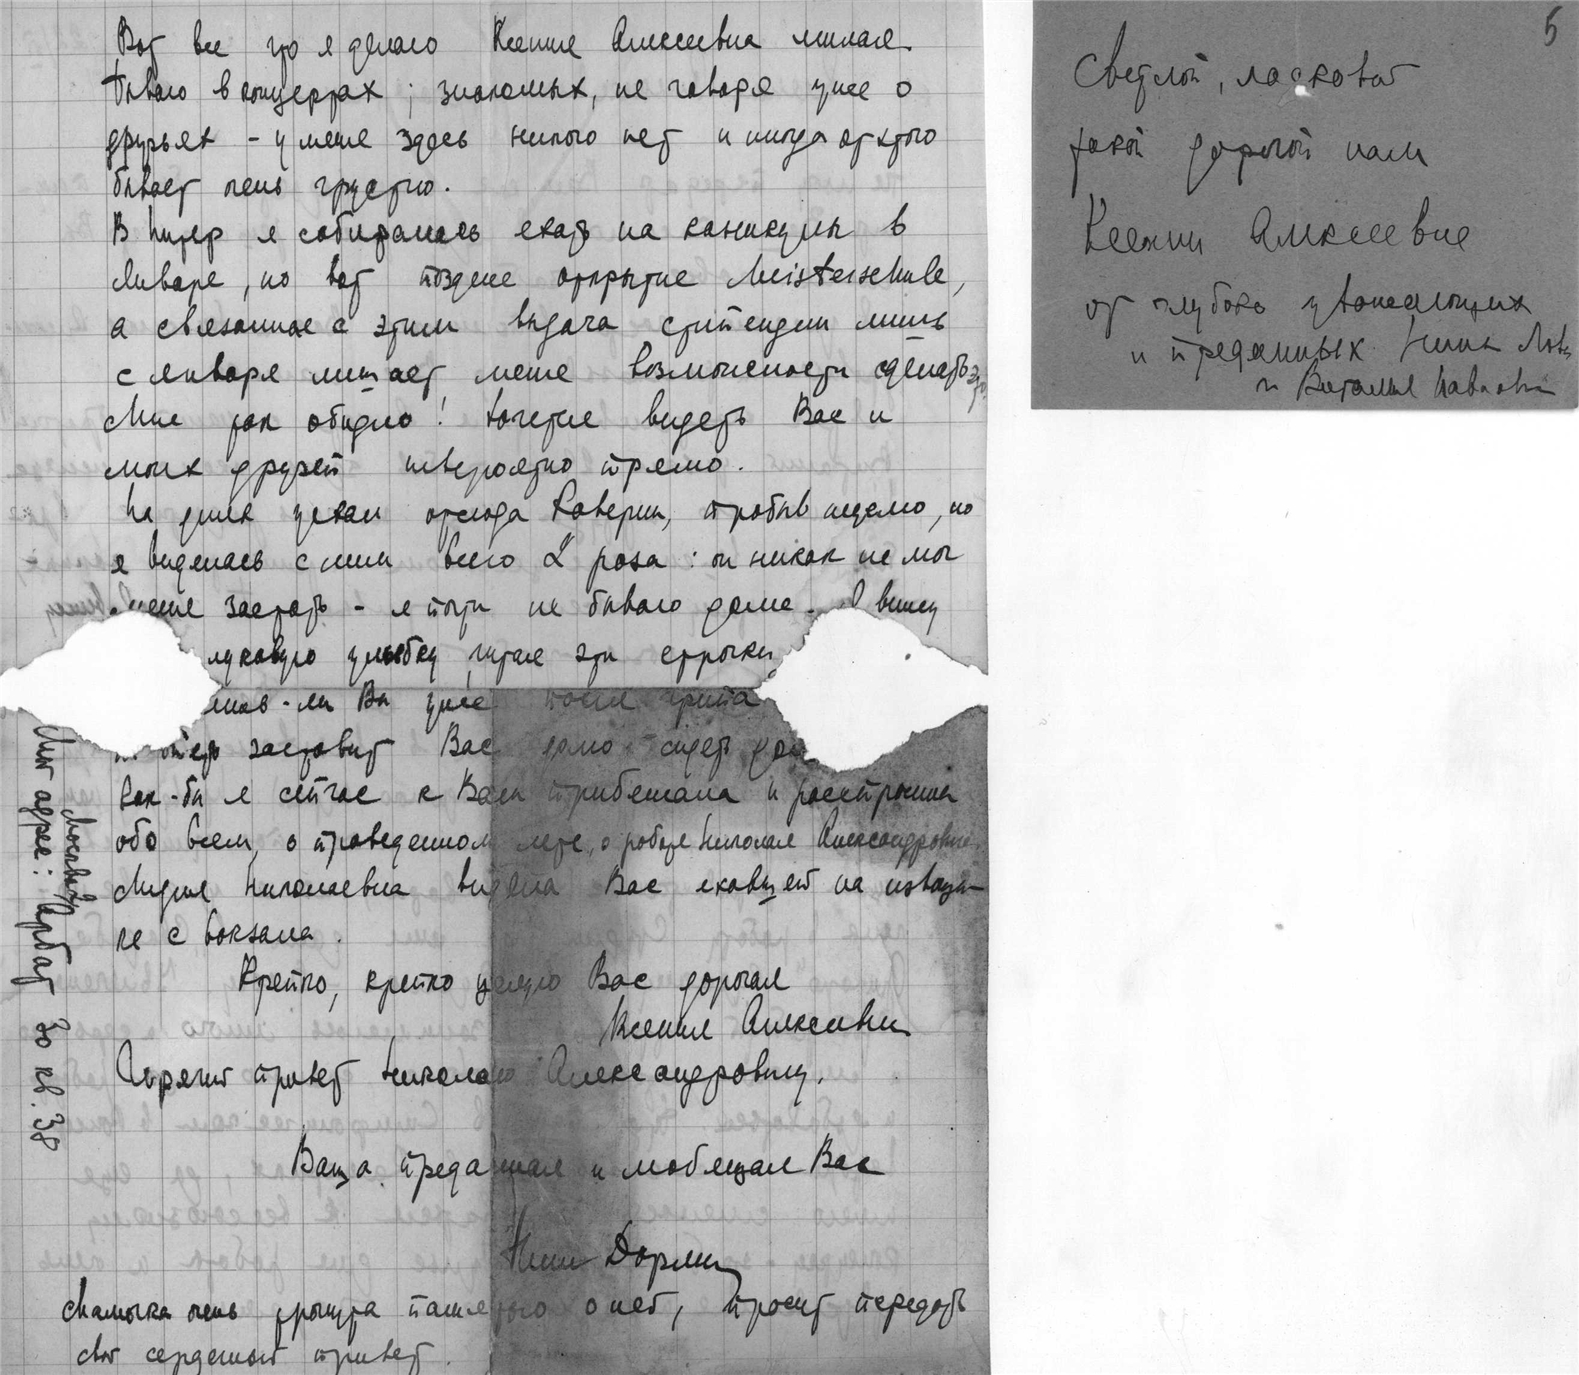 Вот все что я делаю Ксения Алексеевна милая.
Бываю в концертах; знакомых, не говоря уже о
друзьях - у меня здесь никого нет и иногда от этого
бывает очень грустно.
В Питер я собиралась ехать на каникулы в
Январе, но вот позднее открытие Meisterschule,
а связанная с этим выдача стипендии лишь
с января лишает меня возможности сделать это.
Мне так обидно! Хочется видеть Вас и
моих друзей невероятно прямо.
На днях уехал отсюда Каверин, пробыв неделю, но
я виделась с ним всего 2 раза: он никак не мог
меня застать - я почти не бываю дома. Я вижу
лукавую улыбку читая эти строчки
лись-ли Вы уже после гриппа
заставит Вас сидеть
Как-бы я сейчас к Вам прибежала и расспросила
обо всем, о проведенном лете, о работе Николая Александровича.
Лидия Николаевна видела Вас ехавшей на извозчи-
ке с вокзала.
Крепко, крепко целую Вас дорогая
Ксения Алексеевна
Горячий привет Николаю Александровичу.
Ваша преданная и любящая Вас
Нина Дорлиак
Мамочка очень тронута памятью о ней, просит передать
свой сердечный привет.
Мой адрес: Арбат 30 кв. 38
Москва
5
Светлой, ласковой
такой дорогой нам
Ксении Алексеевне
от глубоко уважающих
и преданных Нины Льв
и Виталия Павлович